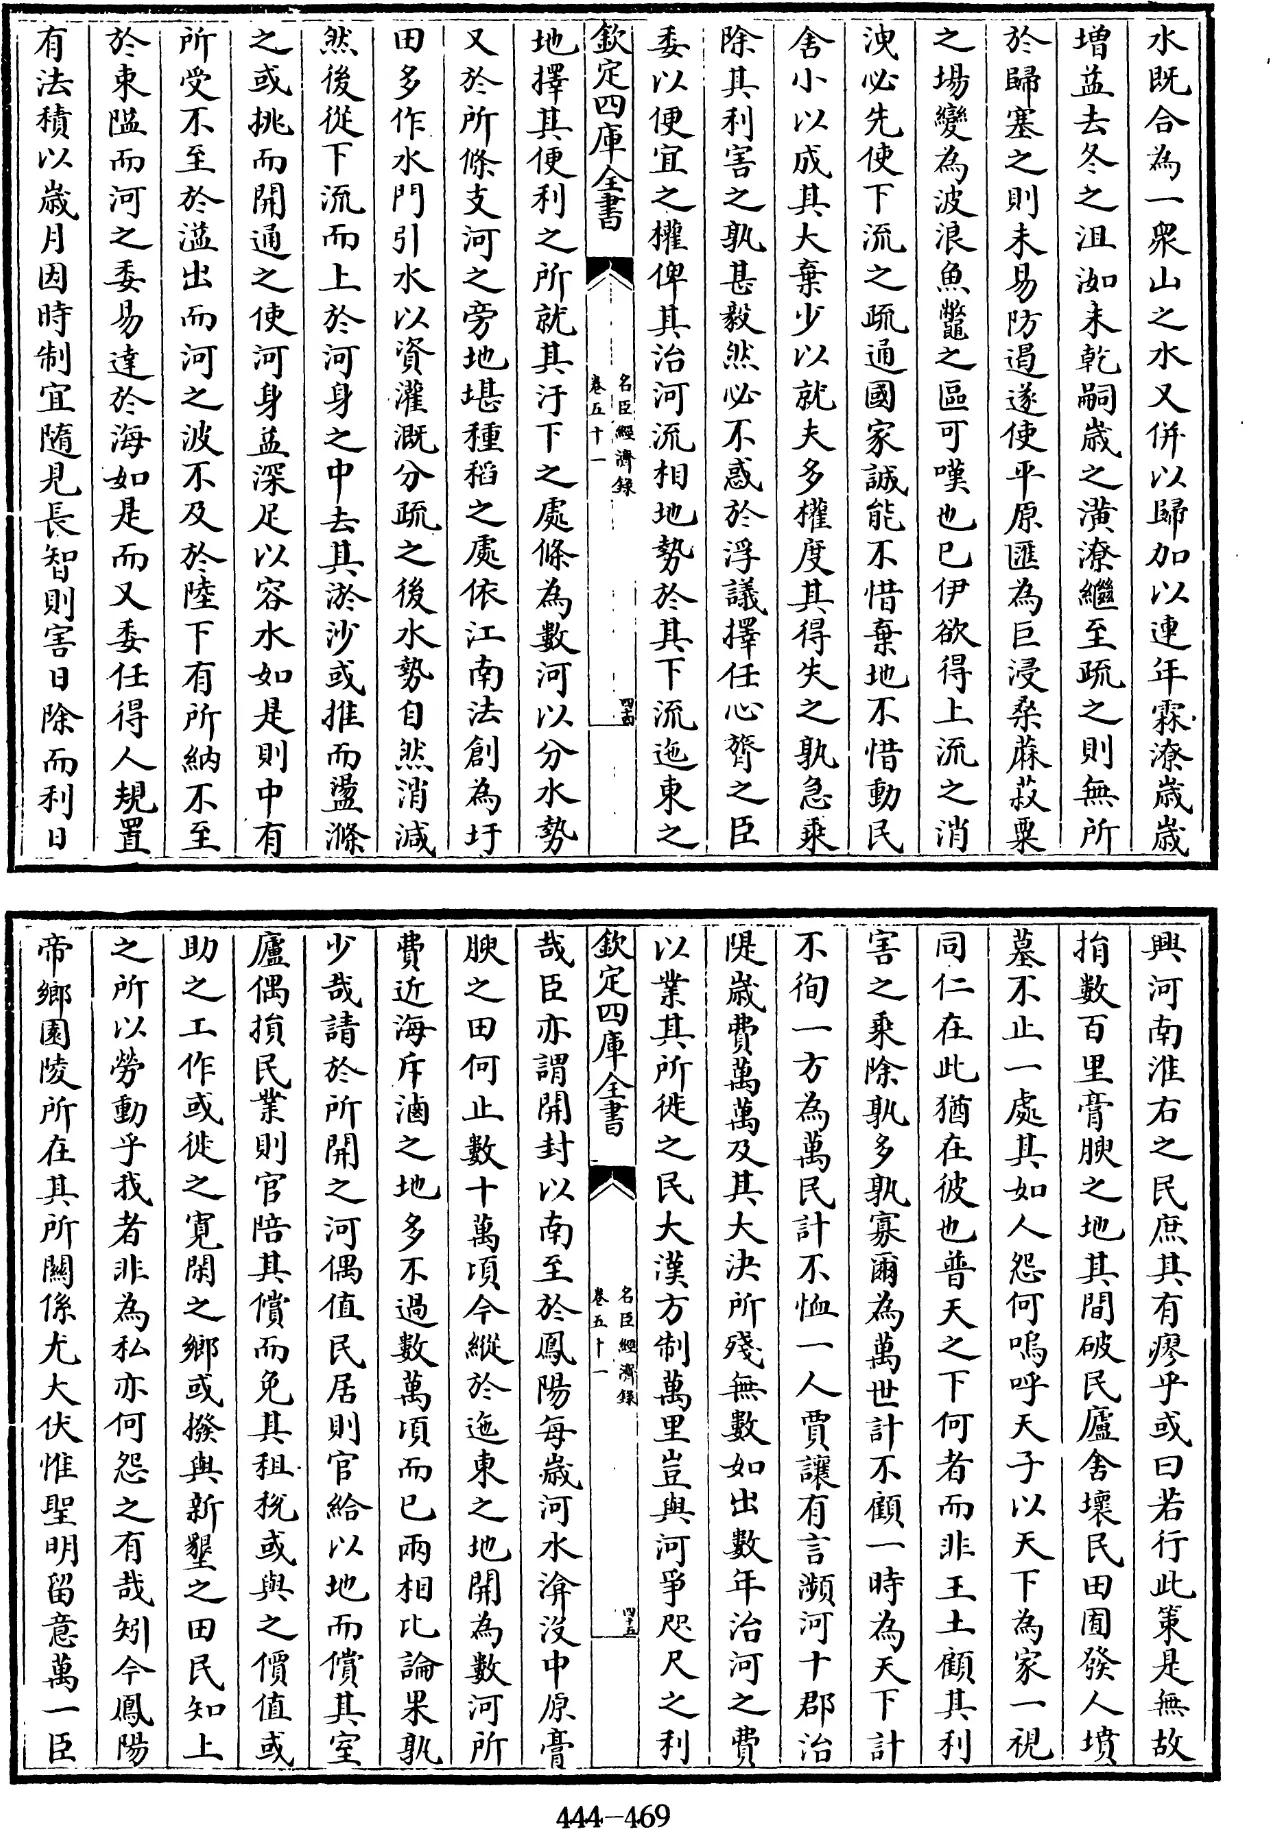 水既合為一衆山之水又併以歸加以連年霖潦歲歲
增益去冬之沮洳未乾嗣歲之潢潦繼至疏之則無所
於歸塞之則未易防遏遂使平原匯為巨浸桑蔴菽粟
之場變為波浪魚鼈之區可嘆也已伊欲得上流之消
洩必先使下流之疏通國家誠能不惜棄地不惜動民
舍小以成其大棄少以就夫多權度其得失之孰急乘
除其利害之孰甚毅然必不惑於浮議擇任心膂之臣
委以便宜之權俾其治河流相地勢於其下流迤東之
欽定四庫全書
名臣經濟錄
卷五十一
四十四
地擇其便利之所就其汙下之處條為數河以分水勢
又於所條支河之旁地堪種稻之處依江南法創為圩
田多作水門引水以資灌溉分疏之後水勢自然消減
然後從下流而上於河身之中去其淤沙或推而盪滌
之或挑而開通之使河身益深足以容水如是則中有
所受不至於溢出而河之波不及於陸下有所納不至
於束隘而河之委易達於海如是而又委任得人規置
有法積以歲月因時制宜隨見長智則害日除而利日
興河南淮右之民庶其有瘳乎或曰若行此策是無故
捐數百里膏腴之地其間破民廬舍壞民田囿發人墳
墓不止一處其如人怨何嗚呼天子以天下為家一視
同仁在此猶在彼也普天之下何者而非王土顧其利
害之乘除孰多孰寡爾為萬世計不顧一時為天下計
不徇一方為萬民計不恤一人賈讓有言瀕河十郡治
隄歲費萬萬及其大決所殘無數如出數年治河之費
以業其所徙之民大漢方制萬里豈與河爭咫尺之利
欽定四庫全書
名臣經濟錄
卷五十一
四十五
哉臣亦謂開封以南至於鳳陽每歲河水渰沒中原膏
腴之田何止數十萬頃今縱於迤東之地開為數河所
費近海斥滷之地多不過數萬頃而已兩相比論果孰
少哉請於所開之河偶值民居則官給以地而償其室
廬偶損民業則官陪其償而免其租稅或與之價值或
助之工作或徙之寛閑之鄉或撥與新墾之田民知上
之所以勞動乎我者非為私亦何怨之有哉矧今鳳陽
帝鄉園陵所在其所關係尤大伏惟聖明留意萬一臣
444-469